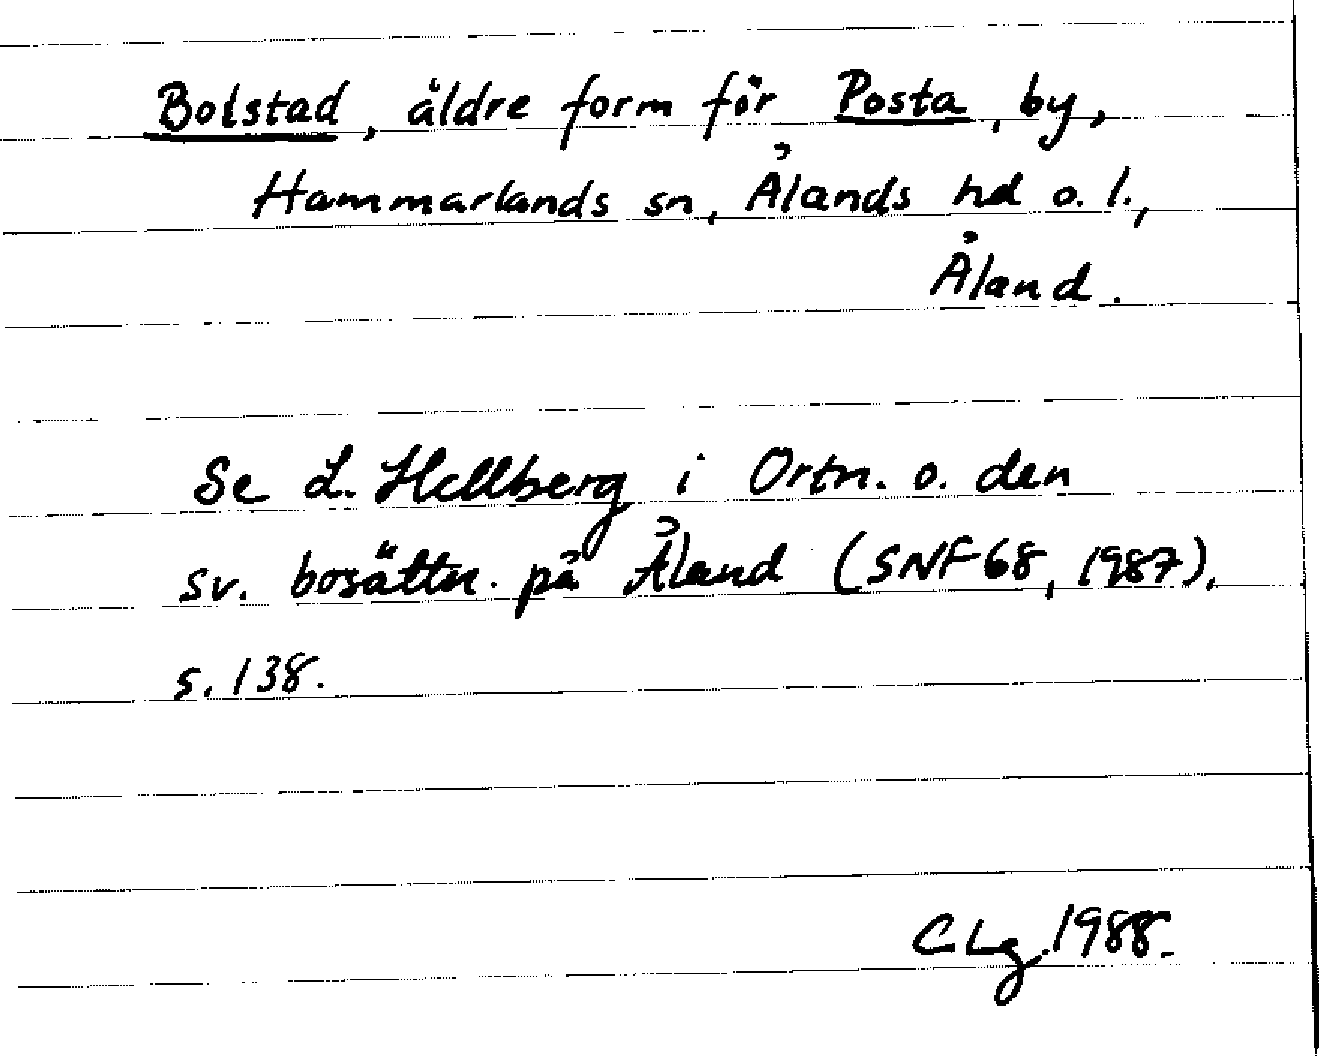 Bolstad, äldre form för Posta, by,
Hammarlands sn, Ålands hd o. l.,
Åland.
Se L. Hellberg i Ortn. o. den
sv. bosättn. på Åland (SNF 68, 1987),
s. 138.
CLg. 1988.